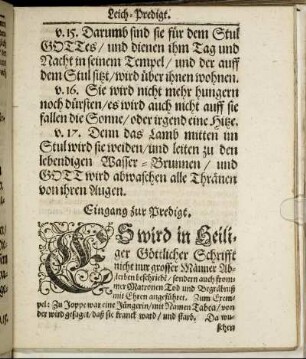 Leich-Predigt.
v.15. Darumb sind sie für dem Stul
GOTTes/ und dienen ihm Tag und
Nacht in seinem Tempel/ und der auff
dem Stul sitzt/ wird über ihnen wohnen.
v.16. Sie wird nicht mehr hungern
noch dürsten/ es wird auch nicht auff sie
fallen die Sonne/ oder irgend eine Hitze.
v.17. Denn das Lamb mitten im
Stul wird sie weiden/ und leiten zu den
lebendigen Wasser-Brunnen/ und
GOTT wird abwaschen alle Thränen
von ihren Augen.
Eingang zur Predigt.
ES wird in Heili-
ger Göttlicher Schrifft
nicht nur grosser Männer Ab-
sterben beschriebē/ sondern auch from-
mer Matronen Tod und Begräbnüß
mit Ehren angeführet. Zum Exem-
pel: Zu Joppe war eine Jüngerin/ mit Namen Tabea/ von
der wird gesaget/ daß sie kranck ward/ und starb. Da wu-
schen